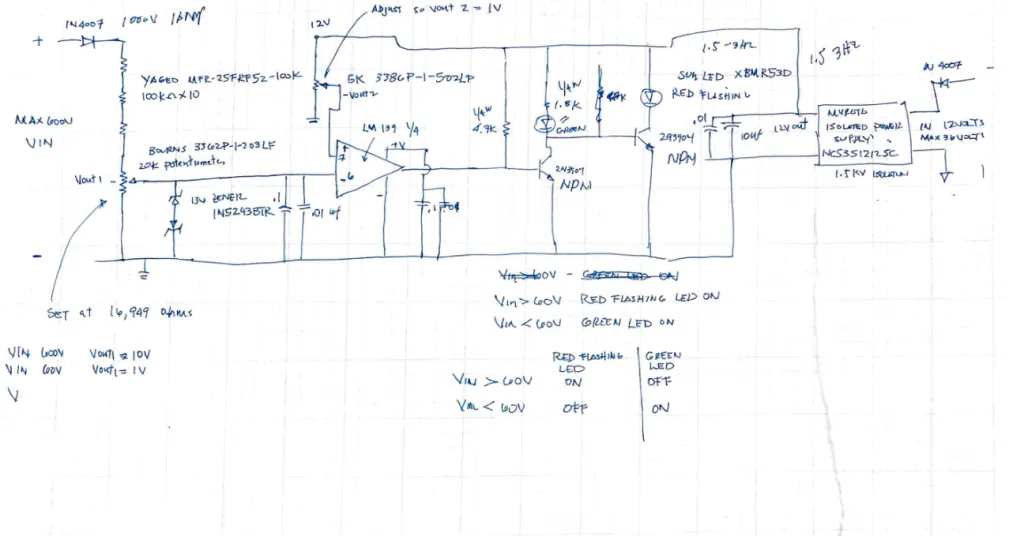 ADJUST SO VOUT 2 = 1V
+ 1N4007 1000V
12V
1.5 - 3HZ
1.5 3HZ
YAGEO MFR-25FRF52-100K
100K Ω X 10
5K 3386P-1-502LP
VOUT2
SUN LED XBMR53D
RED FLASHING
1/4W
1.5K
GREEN
1/4W
4.7K
IN 4007
-
MAX 600V
VIN
LM 139 1/4
+V
BOURNS 3362P-1-203LF
20K potentiometer
+
7
- 6
2N3904
NPN
2N3904
NPN
.01
10uf
12V out
MURATA
ISOLATED POWER
SUPPLY
NCS3S1212SC
1.5KV ISOLATION
IN 12VOLTS
MAX 36VOLTS
Vout 1
13V ZENER
1N5243BTR
.1
.01 uf
.1
-
-
SET at 16,949 ohms
Vin>60V - GREEN LED ON
Vin > 60V RED FLASHING LED ON
Vin < 60V GREEN LED ON
VIN 600V Vout1 = 10V
VIN 60V Vout1 = 1V
V
RED FLASHING LED
GREEN LED
VIN > 60V ON OFF
VIN < 60V OFF ON